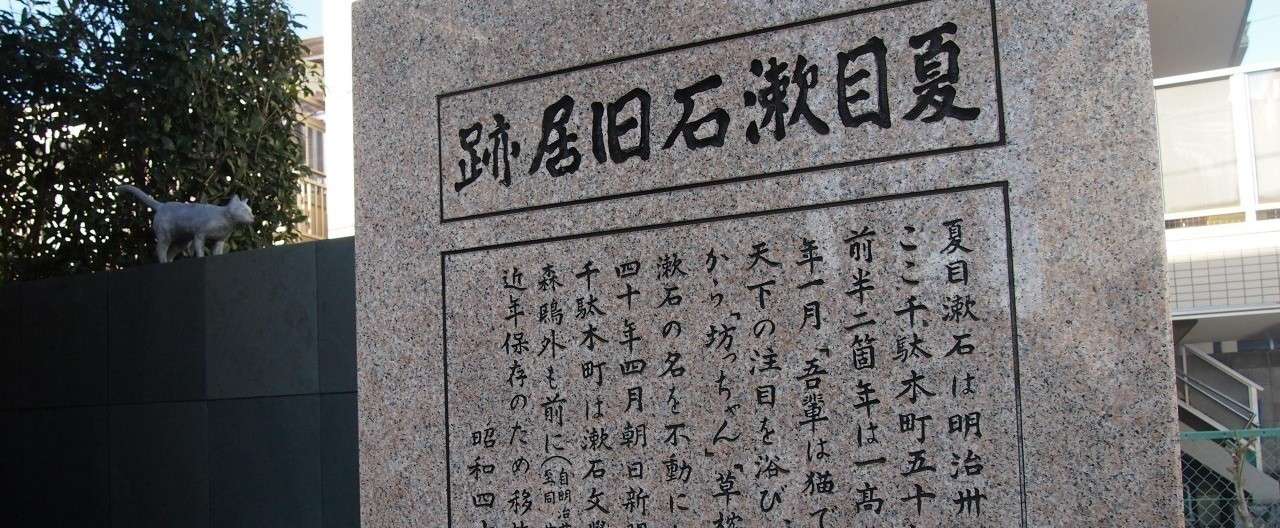 夏目漱石旧居跡
夏目漱石は明治卅
ここ千駄木町五十
前半二箇年は一高
年一月「吾輩は猫で
天下の注目を浴び、
から「坊っちゃん」「草枕
漱石の名を不動に
四十年四月朝日新聞
千駄木町は漱石文學
森鷗外も前に（自明治
至同
近年保存のため移
昭和四十